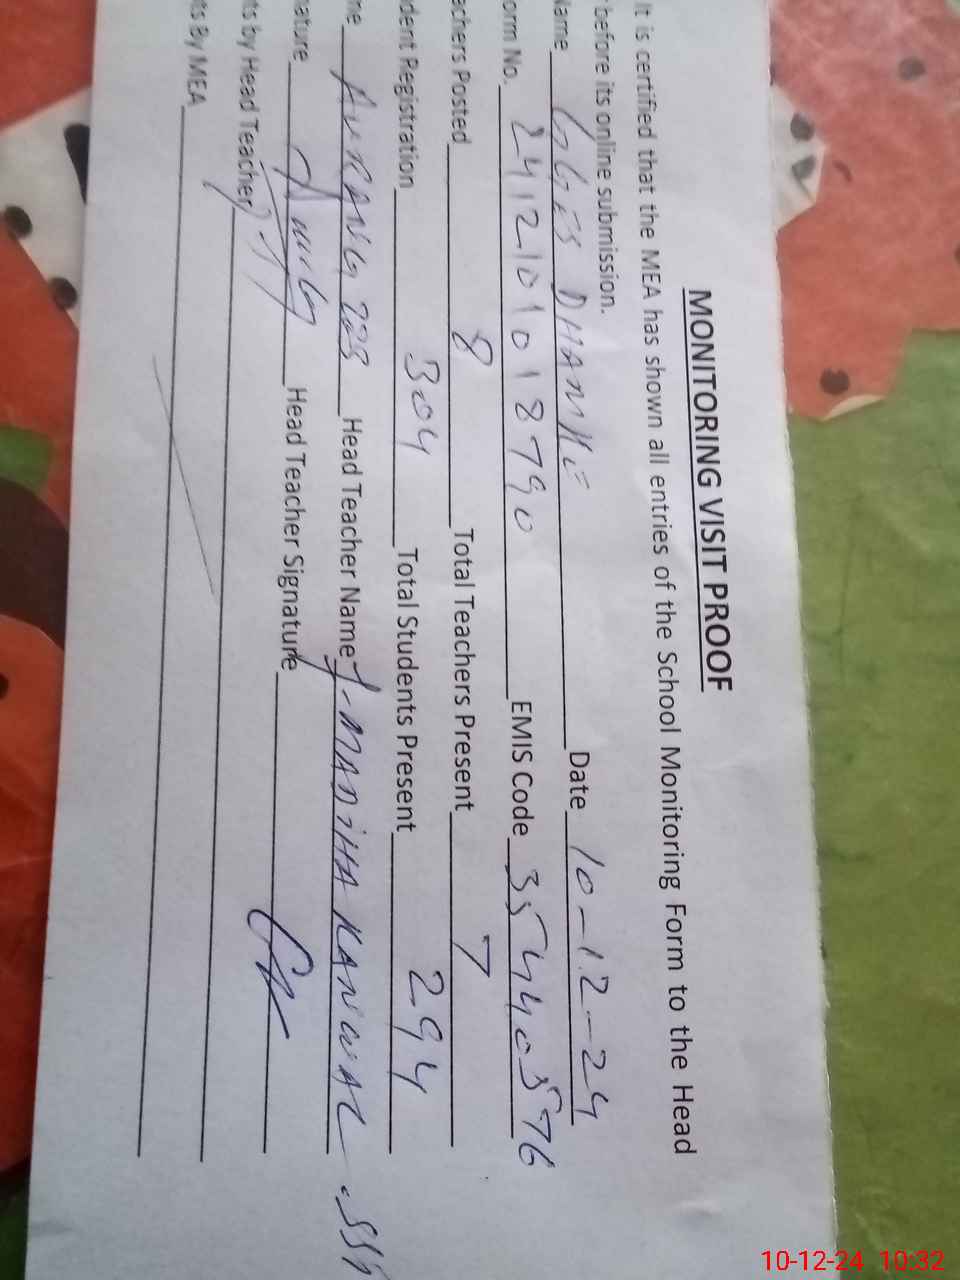 MONITORING VISIT PROOF
It is certified that the MEA has shown all entries of the School Monitoring Form to the Head
before its online submission.
Name Date 10-12-24
orm No. EMIS Code 35440576
achers Posted 8 Total Teachers Present 7
dent Registration 304 Total Students Present 294
me Head Teacher Name MADIHA KANWAL
nature Head Teacher Signature
ts by Head Teacher
ts By MEA
10-12-24 10:32